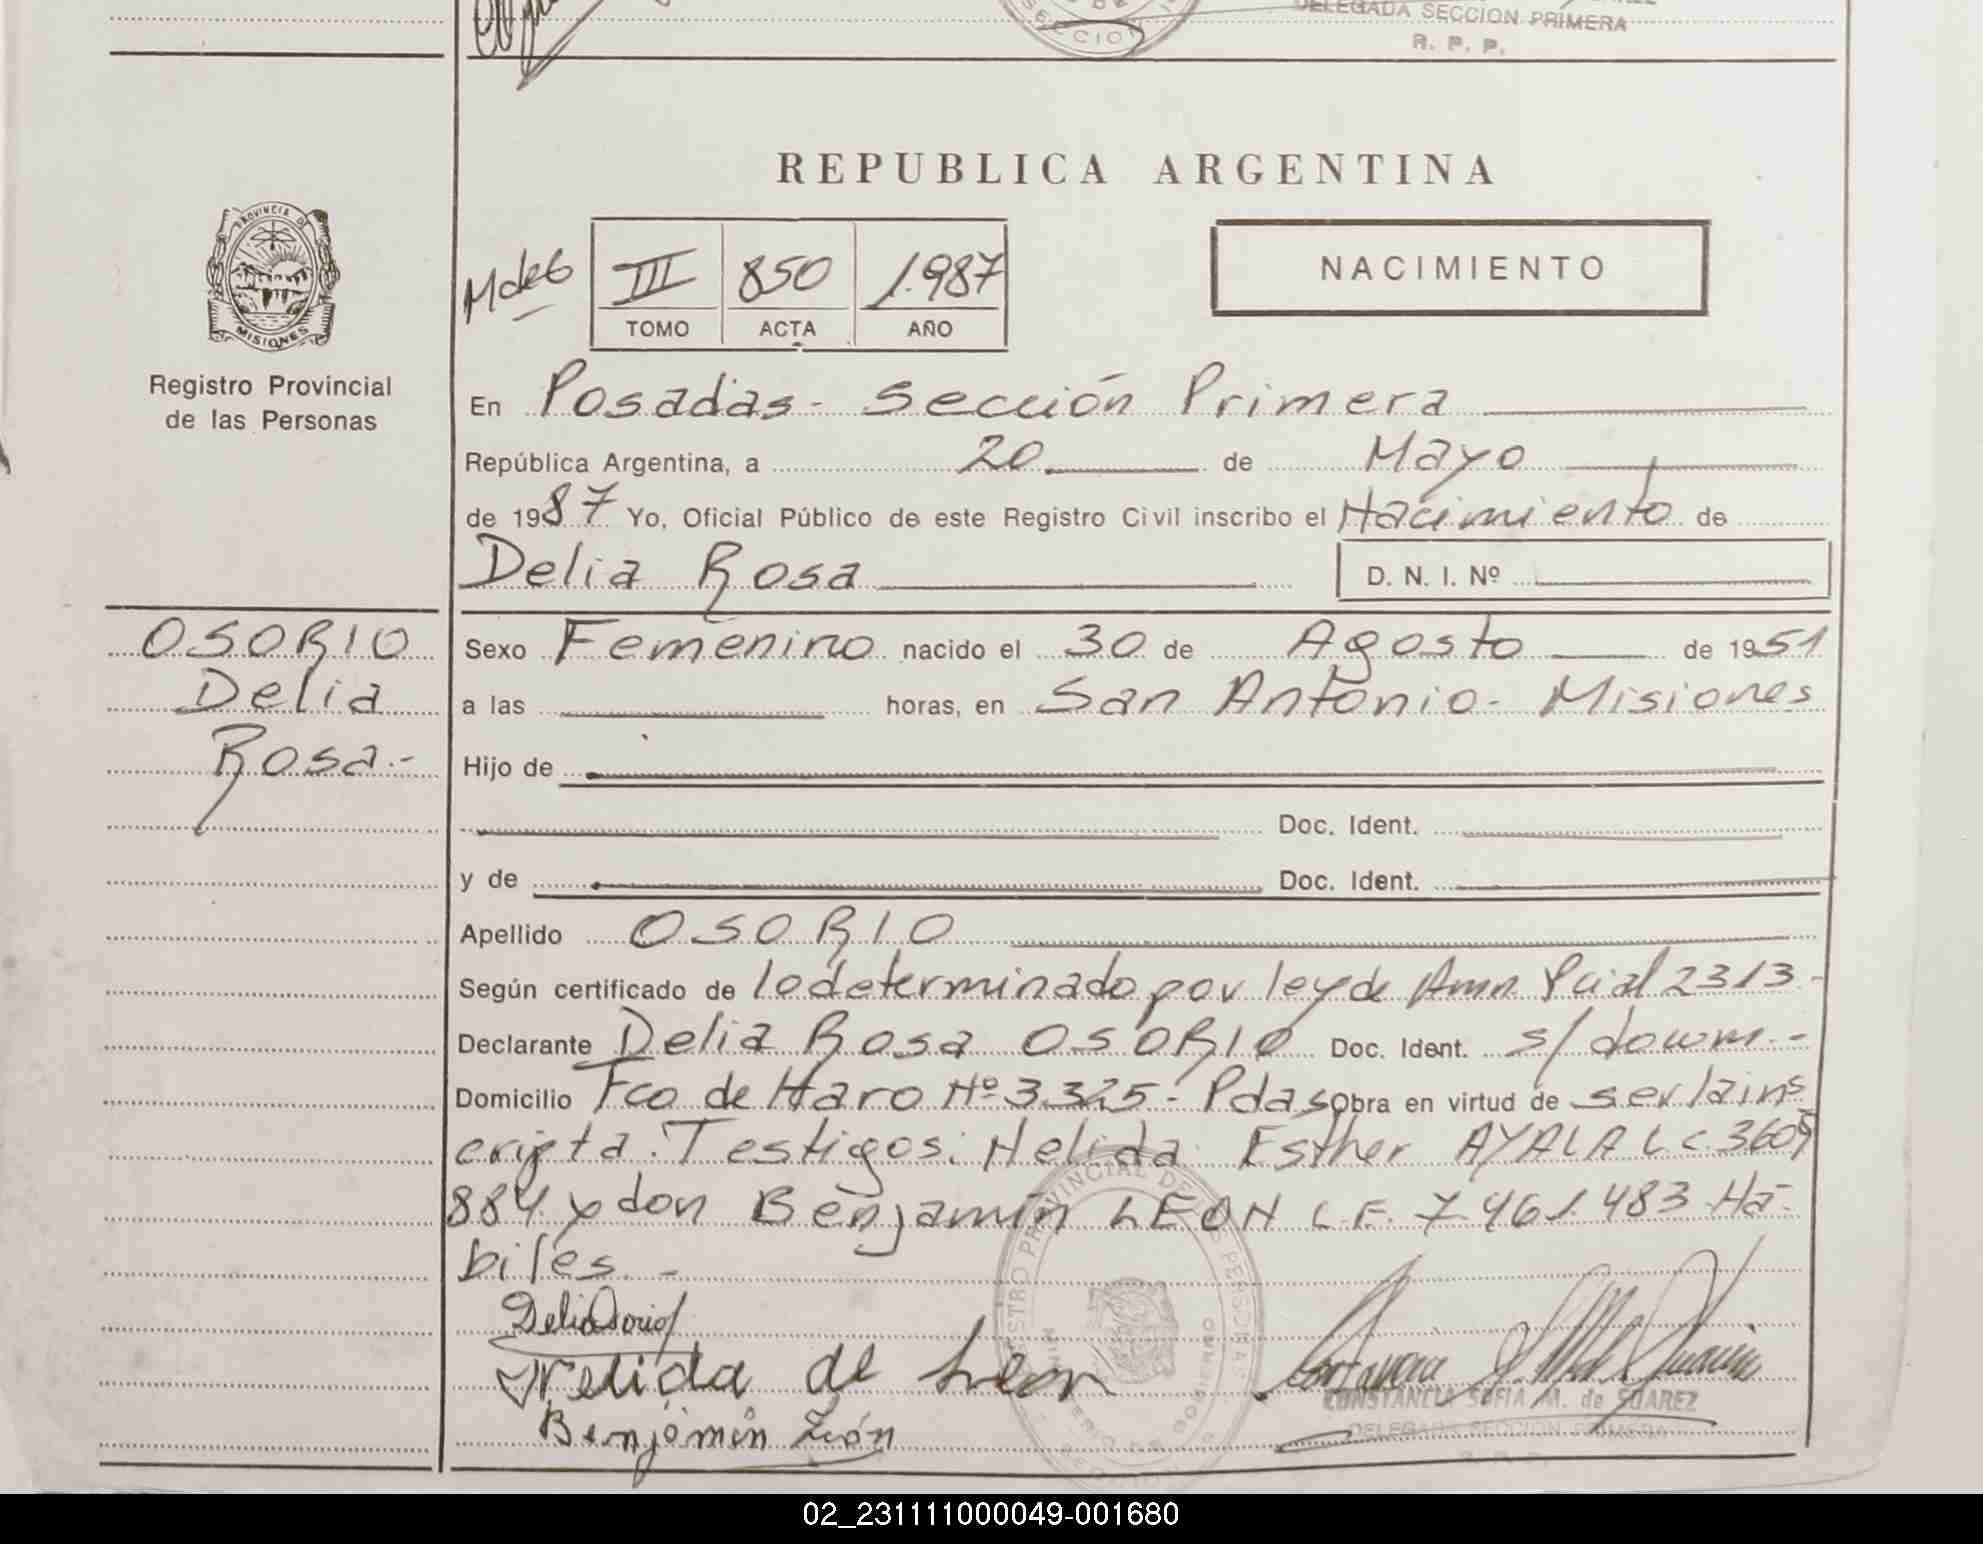 DELEGADA SECCION PRIMERA
R. P. P.
REPUBLICA ARGENTINA
PROVINCIA DE
MISIONES
Registro Provincial
de las Personas
M de 6
III 850 1.987
TOMO ACTA AÑO
NACIMIENTO
En Posadas - Sección Primera
República Argentina, a 20 de Mayo
de 1987 Yo, Oficial Público de este Registro Civil inscribo el Nacimiento de
Delia Rosa D. N. I. Nº
OSORIO
Delia
Rosa.-
Sexo Femenino nacido el 30 de Agosto de 1951
a las horas, en San Antonio - Misiones
Hijo de
Doc. Ident.
y de Doc. Ident.
Apellido OSORIO
Según certificado de lo determinado por ley de Amn. Pcial 2313.-
Declarante Delia Rosa OSORIO Doc. Ident. s/docum.-
Domicilio Fco de Haro Nº 3325 - Pdas Obra en virtud de ser la ins
cripta. Testigos: Nelida Esther AYALA L C. 3609
884 y don Benjamín LEON L.E. 7.461.483 Há-
biles.-
Delia Osorio
Nelida de Leon
Benjamín León
REGISTRO PROVINCIAL DE LAS PERSONAS
MINISTERIO DE GOBIERNO
CONSTANCIA SOFIA M. de SUAREZ
DELEGADA SECCION PRIMERA
R. P. P.
02_231111000049-001680